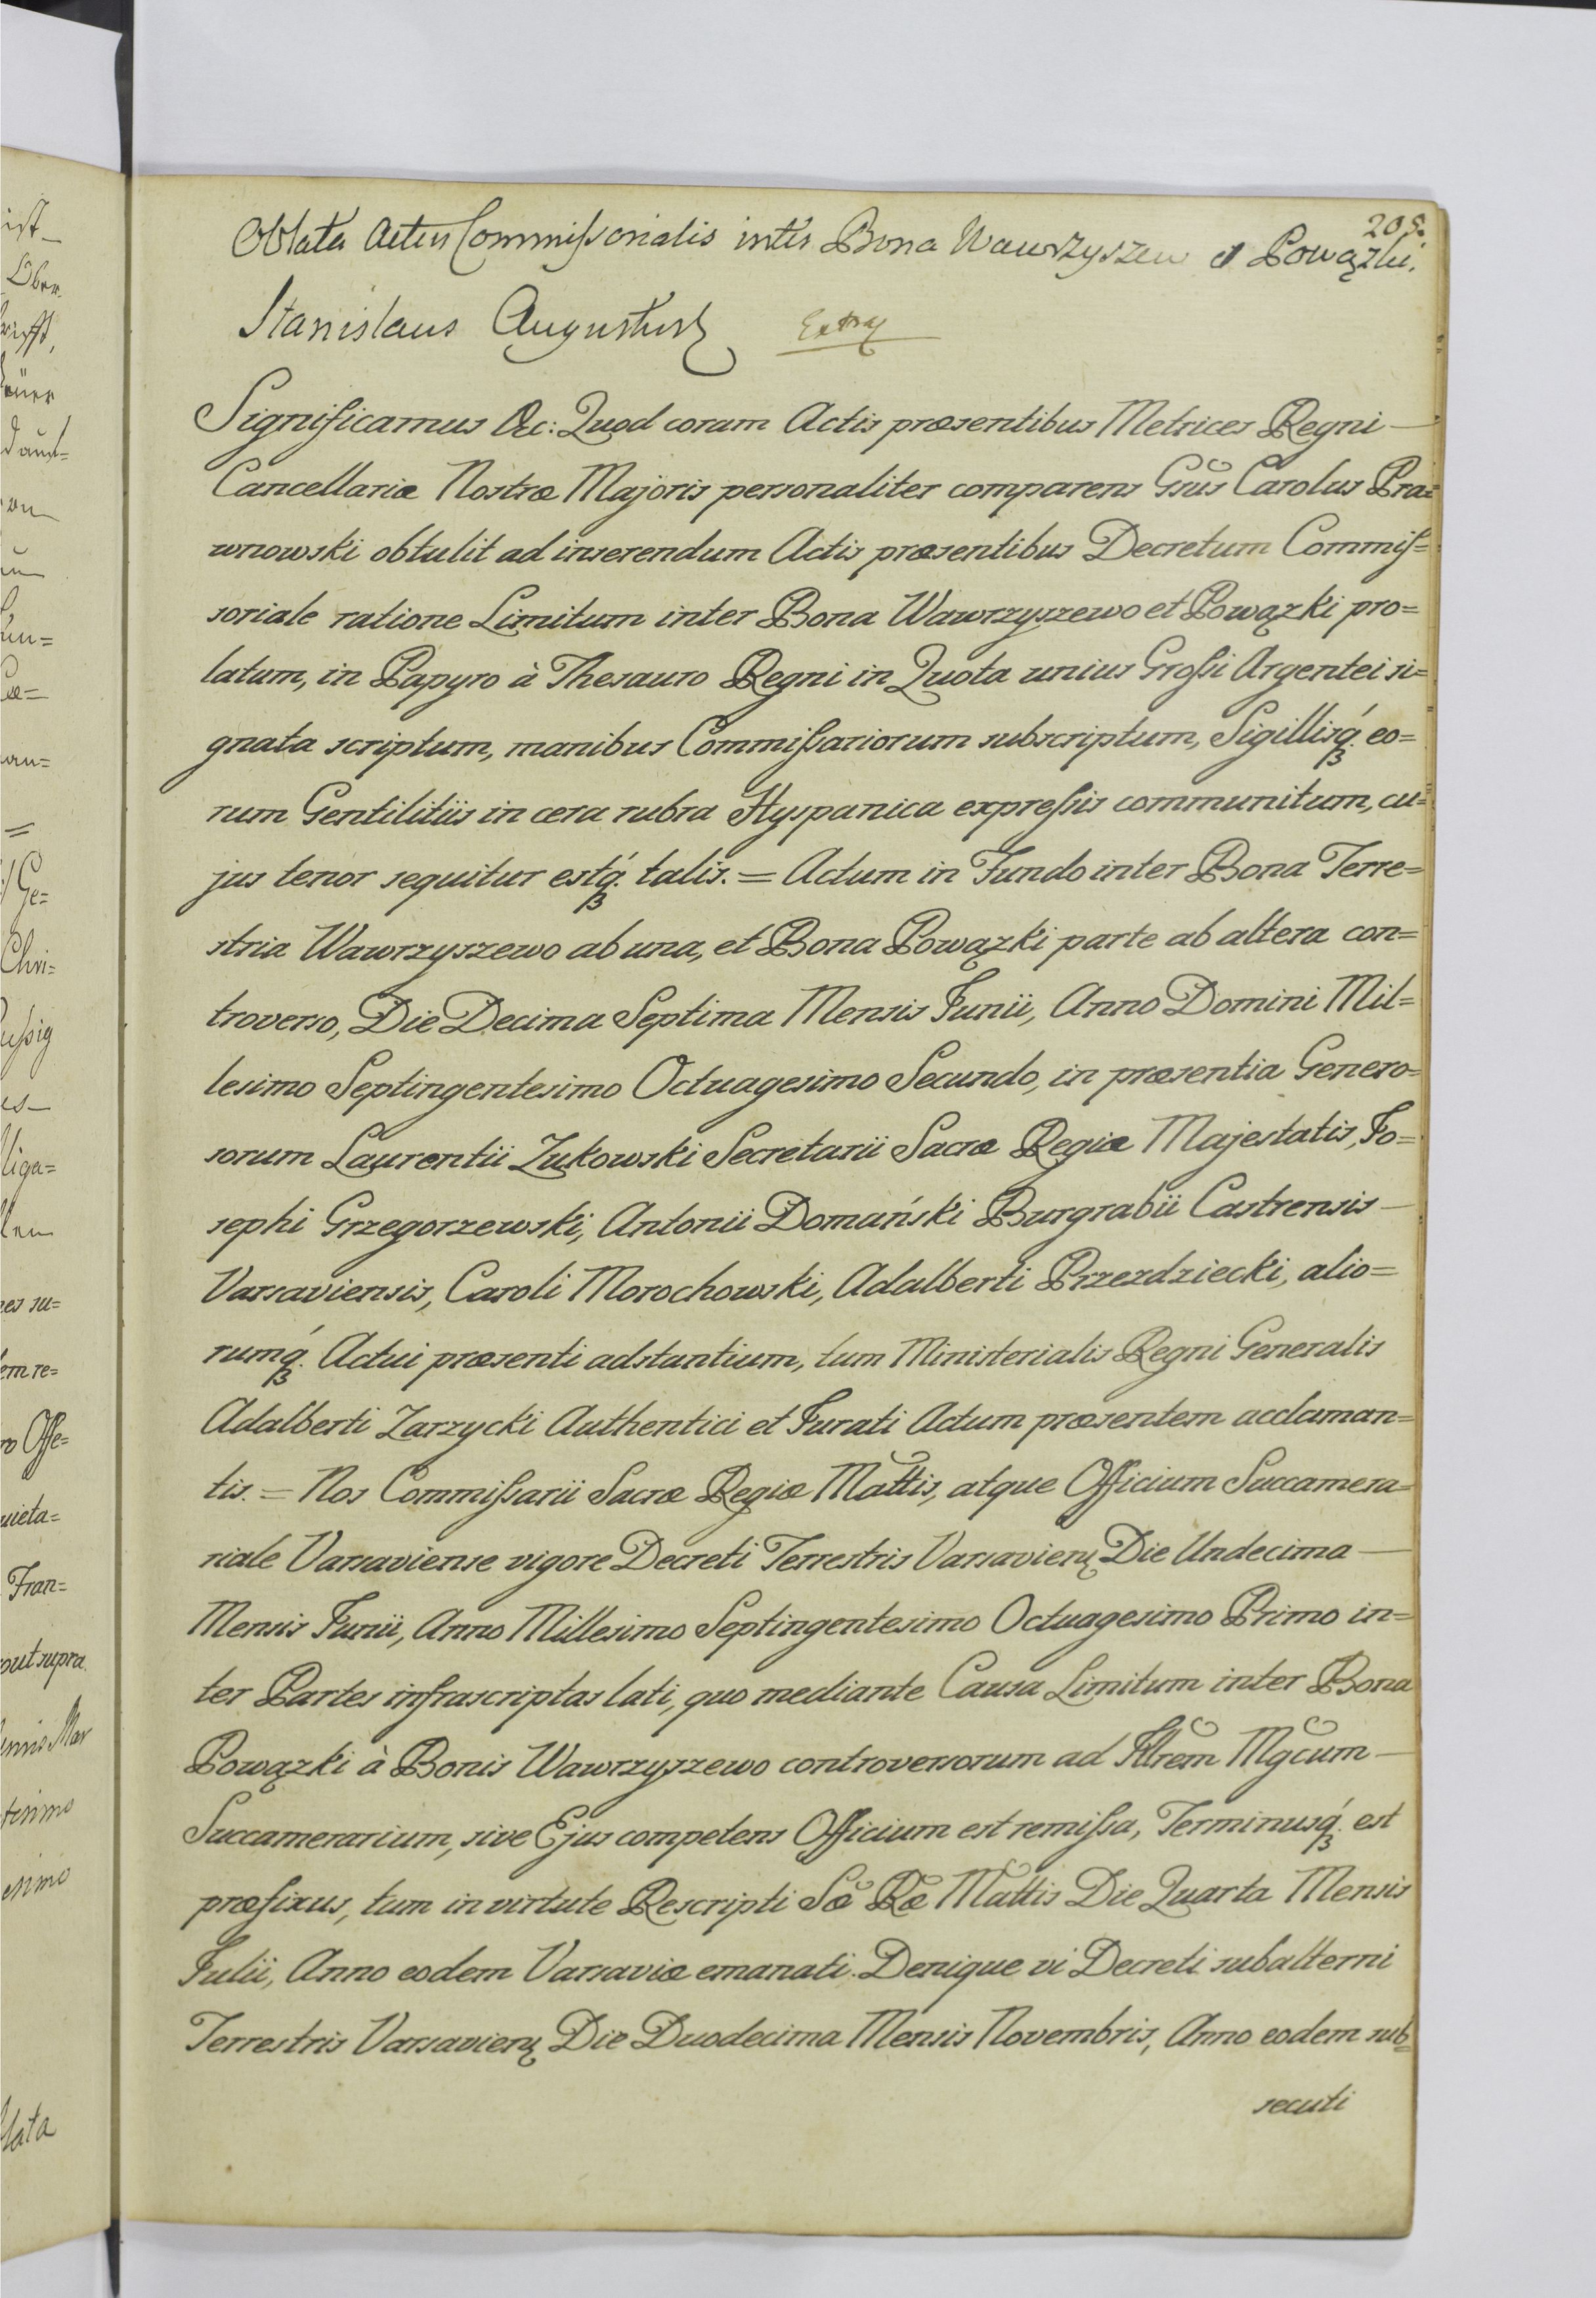 205.
Oblata Actus Commissorialis inter Bona Wawrzyszew et Powązki.
Stanislaus Augustus
Extra
Significamus &c: Quod coram Actis præsentibus Metrices Regni —
Cancellariæ Nostræ Majoris personaliter comparens Gsus Carolus Pra=
wnowski obtulit ad inserendum Actis præsentibus Decretum Commis=
soriale ratione Limitum inter Bona Wawrzyszewo et Powązki pro=
latum, in Papyro à Thesauro Regni in Quota unius Grossi Argentei si=
gnata scriptum, manibus Commissariorum subscriptum, Sigillisq́ꝫ eo=
rum Gentilitiis in cera rubra Hyspanica expressis communitum, cu=
jus tenor sequitur estq́ꝫ talis. = Actum in Fundo inter Bona Terre=
stria Wawrzyszewo ab una, et Bona Powązki parte ab altera con=
troverso, Die Decima Septima Mensis Junii, Anno Domini Mil=
lesimo Septingentesimo Octuagesimo Secundo, in præsentia Genero=
sorum Laurentii Zukowski Secretarii Sacræ Regiæ Majestatis, Jo=
sephi Grzegorzewski, Antonii Domański Burgrabii Castrensis —
Varsaviensis, Caroli Morochowski, Adalberti Przezdziecki, alio=
rumq́ꝫ Actui præsenti adstantium, tum Ministerialis Regni Generalis
Adalberti Zarzycki Authentici et Jurati Actum præsentem acclaman=
tis. = Nos Commissarii Sacræ Regiæ Mattis, atque Officium Succamera=
riale Varsaviense vigore Decreti Terrestris Varsavien̄ Die Undecima —
Mensis Junii, Anno Millesimo Septingentesimo Octuagesimo Primo in=
ter Partes infrascriptas lati, quo mediante Causa Limitum inter Bona
Powązki à Bonis Wawrzyszewo controversorum ad Illrem Mgcum —
Succamerarium, sive Ejus competens Officium est remissa, Terminusq́ꝫ est
præfixus, tum in virtute Rescripti Sæ Ræ Mattis Die Quarta Mensis
Julii, Anno eodem Varsaviæ emanati. Denique vi Decreti subalterni
Terrestris Varsavien̄ Die Duodecima Mensis Novembris, Anno eodem sub=
secuti